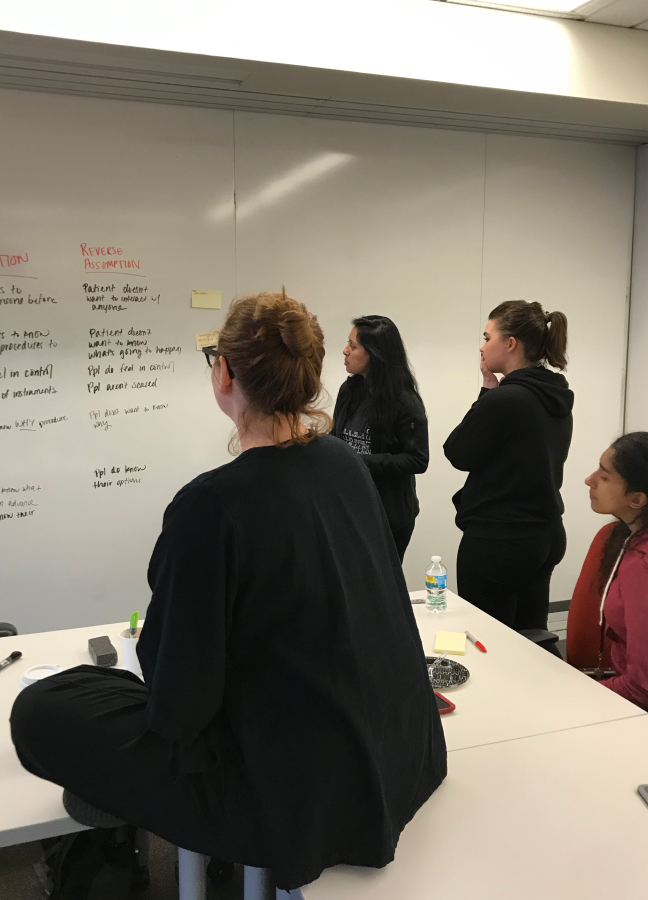 TION
s to
meone before
ts to know
procedures to
el in control
of instruments
now WHY procedure
know what
in advance
know their
REVERSE
ASSUMPTION
Patient doesn't
want to interact w/
anyone
Patient doesn't
want to know
what's going to happen
Ppl do feel in control
Ppl aren't scared
Ppl don't want to know
why
Ppl do know
their options